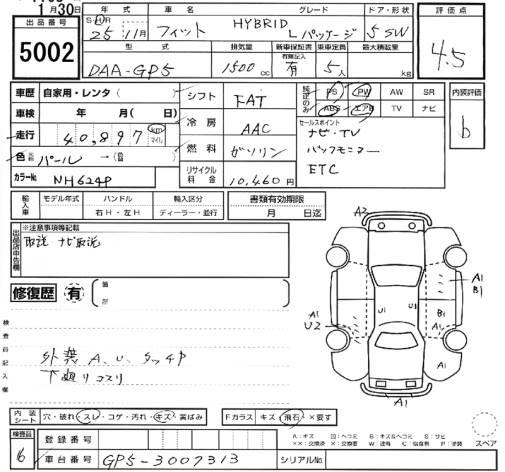 月30日
出品番号
5002
年式 車名 グレード ドア・形状
25年11月 フィット HYBRID L パッケージ 5 SW
型式 排気量 新車保証書 有無記入 乗車定員 最大積載量
DAA-GP5 1500cc 有 5人 kg
評価点
4.5
車歴 自家用・レンタ( )
車検 年 月( 日)
走行 40,897 km マイル
色 パール
カラーNo NH624P
シフト FAT
冷房 AAC
燃料 ガソリン
リサイクル料金 10,460円
純正のみ PS PW AW SR
ABS エアB TV ナビ
セールスポイント
ナビ・TV
バックモニター
ETC
内装評価
b
輸入車 モデル年式 ハンドル 輸入区分
右H・左H ディーラー・並行
書類有効期限
月 日迄
出品店申告欄
※注意事項等記載
取説 ナビ取説
修復歴 有
検査員記入欄
外装 A.U.タッチP
下廻りコスリ
A2
A1
B1
A1
U2
U1
U1
B1
A1
A1
A1
内装シート 穴・破れ・スレ・コゲ・汚れ・キズ・黄ばみ
Fガラス キズ・飛石・×要す
スペア
検査員
16
登録番号
車台番号 GP5-3007313
シリアルNo.